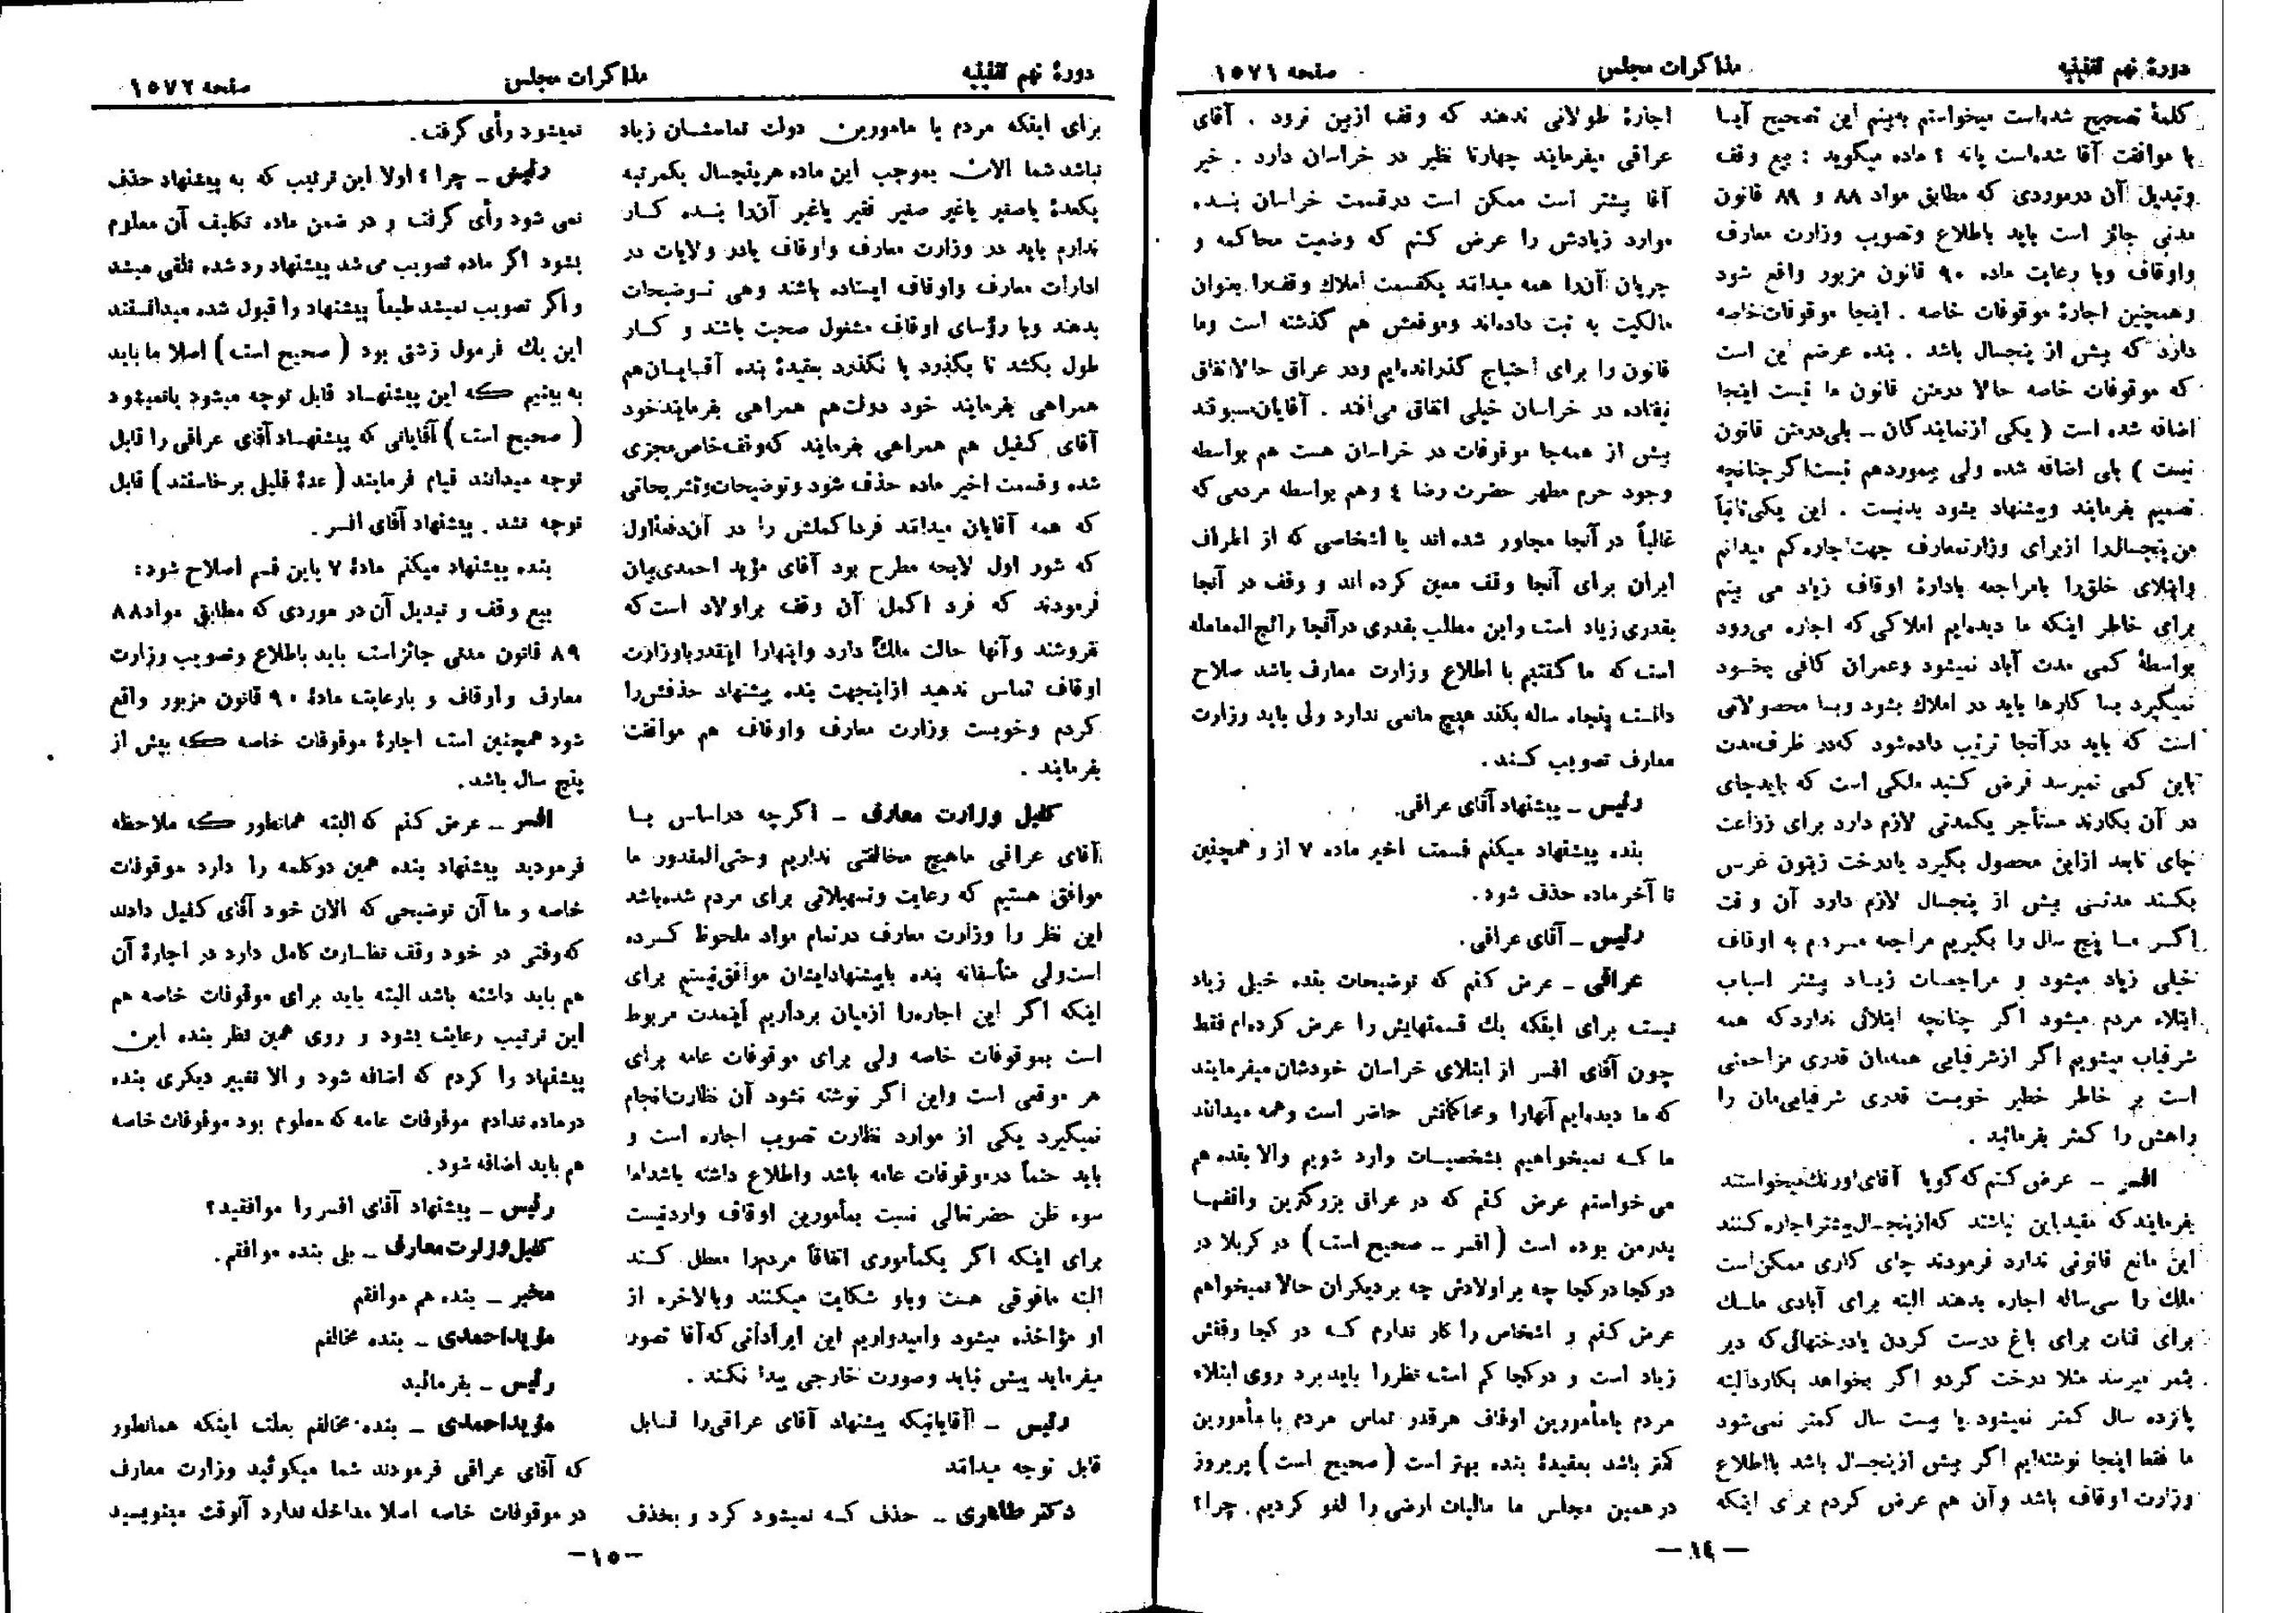 دورهٔ نهم تقنینیه
مذاکرات مجلس
صفحه ۱۵۷۱
کلمهٔ تصحیح شده‌است میخواستم به‌بینم این تصحیح آیا
با موافقت آقا شده‌است یانه ؟ ماده میگوید : بیع وقف
وتبدیل آن درموردی که مطابق مواد ۸۸ و ۸۹ قانون
مدنی جائز است باید باطلاع وتصویب وزارت معارف
واوقاف وبا رعایت ماده ۹۰ قانون مزبور واقع شود
وهمچنین اجارهٔ موقوفات خاصه . اینجا موقوفات‌خاصه
دارد که بیش از پنجسال باشد . بنده عرضم این است
که موقوفات خاصه حالا درمتن قانون ما نیست اینجا
اضافه شده است ( یکی ازنمایندگان ــ بلی‌درمتن قانون
نیست ) بلی اضافه شده ولی بیموردهم نیست‌اگرچنانچه
تصمیم بفرمایند وپیشنهاد بشود بدنیست . این یکی‌ثانیاً
من‌پنجسال‌را ازبرای وزارتمعارف جهت‌اجاره‌کم میدانم
وابتلای خلق‌را بامراجعه بادارهٔ اوقاف زیاد می بینم
برای خاطر اینکه ما دیده‌ایم املاکی‌که اجاره میرود
بواسطهٔ کمی مدت آباد نمیشود وعمران کافی بخود
نمیگیرد بسا کارها باید در املاك بشود وبسا محصولاتی
است که باید درآنجا ترتیب داده‌شود که‌در ظرف‌مدت
باین کمی نمیرسد فرض کنید ملکی است که بایدچای
در آن بکارند مستأجر یکمدتی لازم دارد برای زراعت
چای تابعد ازاین محصول بگیرد یادرخت زیتون غرس
بکنند مدتی بیش از پنجسال لازم دارد آن وقت
اگر ما پنج سال را بگیریم مراجعه مردم به اوقاف
خیلی زیاد میشود و مراجعات زیاد بیشتر اسباب
ابتلاء مردم میشود اگر چنانچه ابتلائی نداردکه همه
شرفیاب میشویم اگر ازشرفیابی همه‌مان قدری مزاحمتی
است بر خاطر خطیر خوبست قدری شرفیابی‌مان را
راهش را کمتر بفرمائید .
افسر ــ عرض کنم که گویا آقای‌اورنك‌میخواستند
بفرمایندکه مقیداین نباشند که‌ازپنجسال‌بیشتراجاره‌کنند
این مانع قانونی ندارد فرمودند چای کاری ممکن‌است
ملك را سی‌ساله اجاره بدهند البته برای آبادی ملك
برای قنات برای باغ درست کردن یادرختهائی‌که دیر
بثمر میرسد مثلا درخت گردو اگر بخواهد بکاردالبته
پانزده سال کمتر نمیشود یا بیست سال کمتر نمی‌شود
ما فقط اینجا نوشته‌ایم اگر بیش ازپنجسال باشد بااطلاع
وزارت اوقاف باشد وآن هم عرض کردم برای اینکه
اجارهٔ طولانی ندهند که وقف ازبین نرود . آقای
عراقی میفرمایند چهارتا نظیر در خراسان دارد . خیر
آقا بیشتر است ممکن است درقسمت خراسان بنده
موارد زیادش را عرض کنم که وضعیت محاکمه و
جریان آن‌را همه میدانند یکقسمت املاك وقف‌را بعنوان
مالکیت به ثبت داده‌اند وموقعش هم گذشته است وما
قانون را برای احتیاج گذرانده‌ایم ودر عراق حالااتفاق
نیفتاده در خراسان خیلی اتفاق می‌افتد . آقایان‌مسبوقند
بیش از همه‌جا موقوفات در خراسان هست هم بواسطه
وجود حرم مطهر حضرت رضا ع وهم بواسطه مردمی‌که
غالباً درآنجا مجاور شده‌اند یا اشخاصی که از اطراف
ایران برای آنجا وقف معین کرده‌اند و وقف در آنجا
بقدری زیاد است واین مطلب بقدری درآنجا رائج‌المعامله
است که ما گفتیم با اطلاع وزارت معارف باشد صلاح
دانست پنجاه ساله بکند هیچ مانعی ندارد ولی باید وزارت
معارف تصویب کند .
رئیس ــ پیشنهاد آقای عراقی.
بنده پیشنهاد میکنم قسمت اخیر ماده ۷ از و همچنین
تا آخر ماده حذف شود .
رئیس ــ آقای عراقی.
عراقی ــ عرض کنم که توضیحات بنده خیلی زیاد
نیست برای اینکه یك قسمتهایش را عرض کرده‌ام فقط
چون آقای افسر از ابتلای خراسان خودشان‌میفرمایند
که ما دیده‌ایم آنهارا ومحاکماتش حاضر است وهمه میدانند
ما که نمیخواهیم بشخصیات وارد شویم والا بنده هم
می‌خواستم عرض کنم که در عراق بزرگترین واقفها
پدرمن بوده است (افسر ــ صحیح است) در کربلا در
درکجا درکجا چه براولادش چه بردیگران حالا نمیخواهم
عرض کنم و اشخاص را کار ندارم که در کجا وقفش
زیاد است و درکجا کم است نظررا بایدبرد روی ابتلاء
مردم بامأمورین اوقاف هرقدر تماس مردم با مأمورین
کمتر باشد بعقیدهٔ بنده بهتر است (صحیح است) پریروز
درهمین مجلس ما مالیات ارضی را لغو کردیم . چرا؟
ــ ۱٤ ــ
دورهٔ نهم تقنینیه
مذاکرات مجلس
صفحه ۱۵۷۲
برای اینکه مردم با مامورین دولت تماسشان زیاد
نباشدشما الان بموجب این ماده هرپنجسال یکمرتبه
یکعدهٔ یاصغیر یاغیر صغیر فقیر یاغیر آن‌را بنده کار
ندارم باید در وزارت معارف واوقاف یادر ولایات در
ادارات معارف واوقاف ایستاده باشند وهی توضیحات
بدهند وبا رؤسای اوقاف مشغول صحبت باشند و کار
طول بکشد تا بگذرد یا نگذرد بعقیدهٔ بنده آقایان‌هم
همراهی بفرمایند خود دولت‌هم همراهی بفرمایندخود
آقای کفیل هم همراهی بفرمایند که‌وقف‌خاص‌مجزی
شده وقسمت اخیر ماده حذف شود وتوضیحات‌وتشریحاتی
که همه آقایان میدانند فرداکملش را در آن‌دفعهٔاول
که شور اول لایحه مطرح بود آقای مؤید احمدی‌بیان
فرمودند که فرد اکمل آن وقف براولاد است‌که
نفروشند وآنها حالت ملك‌ دارد واینهارا اینقدرباوزارت
اوقاف تماس ندهید ازاینجهت بنده پیشنهاد حذفش‌را
کردم وخوبست وزارت معارف واوقاف هم موافقت
بفرمایند .
کفیل وزارت معارف ــ اگرچه دراساس با
آقای عراقی ماهیچ مخالفتی نداریم وحتی‌المقدور ما
موافق هستیم که رعایت وتسهیلاتی برای مردم شده‌باشد
این نظر را وزارت معارف درتمام مواد ملحوظ کرده
است‌ولی متأسفانه بنده باپیشنهادایشان موافق‌نیستم برای
اینکه اگر این اجاره‌را ازمیان برداریم اینمدت مربوط
است بموقوفات خاصه ولی برای موقوفات عامه برای
هر موقعی است واین اگر نوشته نشود آن نظارت‌انجام
نمیگیرد یکی از موارد نظارت تصویب اجاره است و
باید حتماً درموقوفات عامه باشد واطلاع داشته باشداما
سوء ظن حضرتعالی نسبت بمأمورین اوقاف واردنیست
برای اینکه اگر یکمأموری اتفاقاً مردم‌را معطل کند
البته مافوقی هست وباو شکایت میکنند وبالاخره از
او مؤاخذه میشود وامیدواریم این ایراداتی که‌آقا تصور
میفرماید پیش نیاید وصورت خارجی پیدا نکند .
رئیس ــ آقایانیکه پیشنهاد آقای عراقی‌را قابل
قابل توجه میدانند
دکتر طاهری ــ حذف که نمیشود کرد و بحذف
نمیشود رأی گرفت.
رئیس ــ چرا ؟ اولا این ترتیب که به پیشنهاد حذف
نمی شود رأی گرفت و در ضمن ماده تکلیف آن معلوم
بشود اگر ماده تصویب می‌شد پیشنهاد رد شده تلقی میشد
و اگر تصویب نمیشد طبعاً پیشنهاد را قبول شده میدانستند
این یك فرمول زشتی بود ( صحیح است) اصلا ما باید
به بینیم که این پیشنهاد قابل توجه میشود یانمیشود
( صحیح است ) آقایانی که پیشنهاد آقای عراقی را قابل
توجه میدانند قیام فرمایند ( عدهٔ قلیلی برخاستند ) قابل
توجه نشد . پیشنهاد آقای افسر .
بنده پیشنهاد میکنم مادهٔ ۷ باین قسم اصلاح شود:
بیع وقف و تبدیل آن در موردی که مطابق مواد ۸۸
۸۹ قانون مدنی جائزاست باید باطلاع وتصویب وزارت
معارف واوقاف و بارعایت مادهٔ ۹۰ قانون مزبور واقع
شود همچنین است اجارهٔ موقوفات خاصه که بیش از
پنج سال باشد.
افسر ــ عرض کنم که البته همانطور که ملاحظه
فرمودید پیشنهاد بنده همین دوکلمه را دارد موقوفات
خاصه و ما آن توضیحی که الان خود آقای کفیل دادند
که‌وقتی در خود وقف نظارت کامل دارد در اجارهٔ آن
هم باید داشته باشد البته باید برای موقوفات خاصه هم
این ترتیب رعایت بشود و روی همین نظر بنده این
پیشنهاد را کردم که اضافه شود و الا تغییر دیگری بنده
درماده ندادم موقوفات عامه که معلوم بود موقوفات خاصه
هم باید اضافه شود.
رئیس ــ پیشنهاد آقای افسر را موافقید؟
کفیل وزارت معارف ــ بلی بنده موافقم.
مخبر ــ بنده هم موافقم
مؤیداحمدی ــ بنده مخالفم
رئیس ــ بفرمائید
مؤیداحمدی ــ بنده مخالفم بعلت اینکه همانطور
که آقای عراقی فرمودند شما میگوئید وزارت معارف
در موقوفات خاصه اصلا مداخله ندارد آنوقت مینویسید
ــ ۱۵ ــ